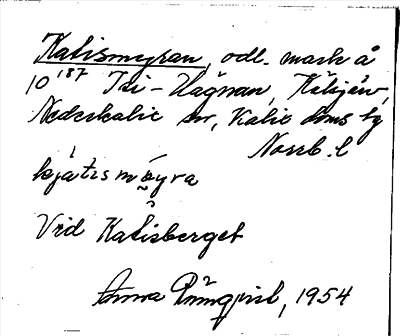 Katismyran, odl. mark å
10¹⁸⁷ Isi-Hägnan, Kälsjärv,
Nederkalix sn, Kalix doms lg
Norrb. l
kjátısmÿra
Vid Katisberget
Anna Rönnqvist, 1954